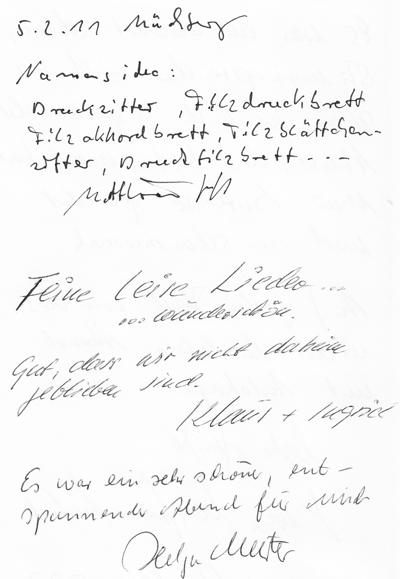 5.2.11
Namensidee:
Druckzitter, Filzdruckbrett
Filzakkordbrett, Filzblättchen-
zitter, Druckfilzbrett...
Feine leise Lieder...
...wunderschön.
Gut, dass wir nicht daheim
geblieben sind.
Klaus + Ingrid
Es war ein sehr schöner, ent-
spannender Abend für mich
Helga